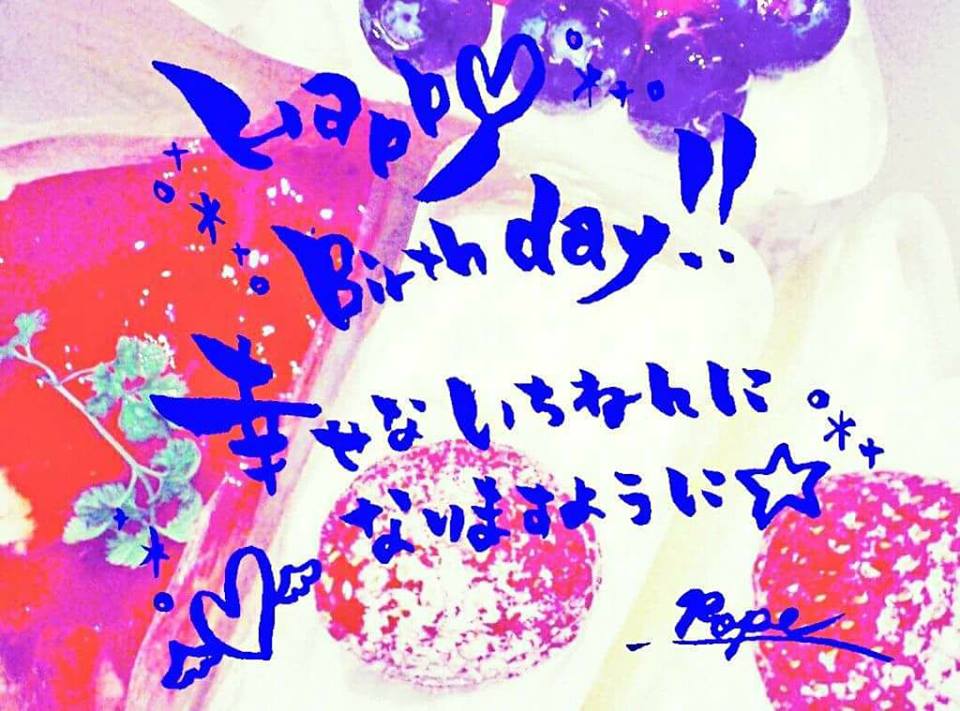 Happy
Birthday!!
幸せないちねんに
なりますように☆
Pope